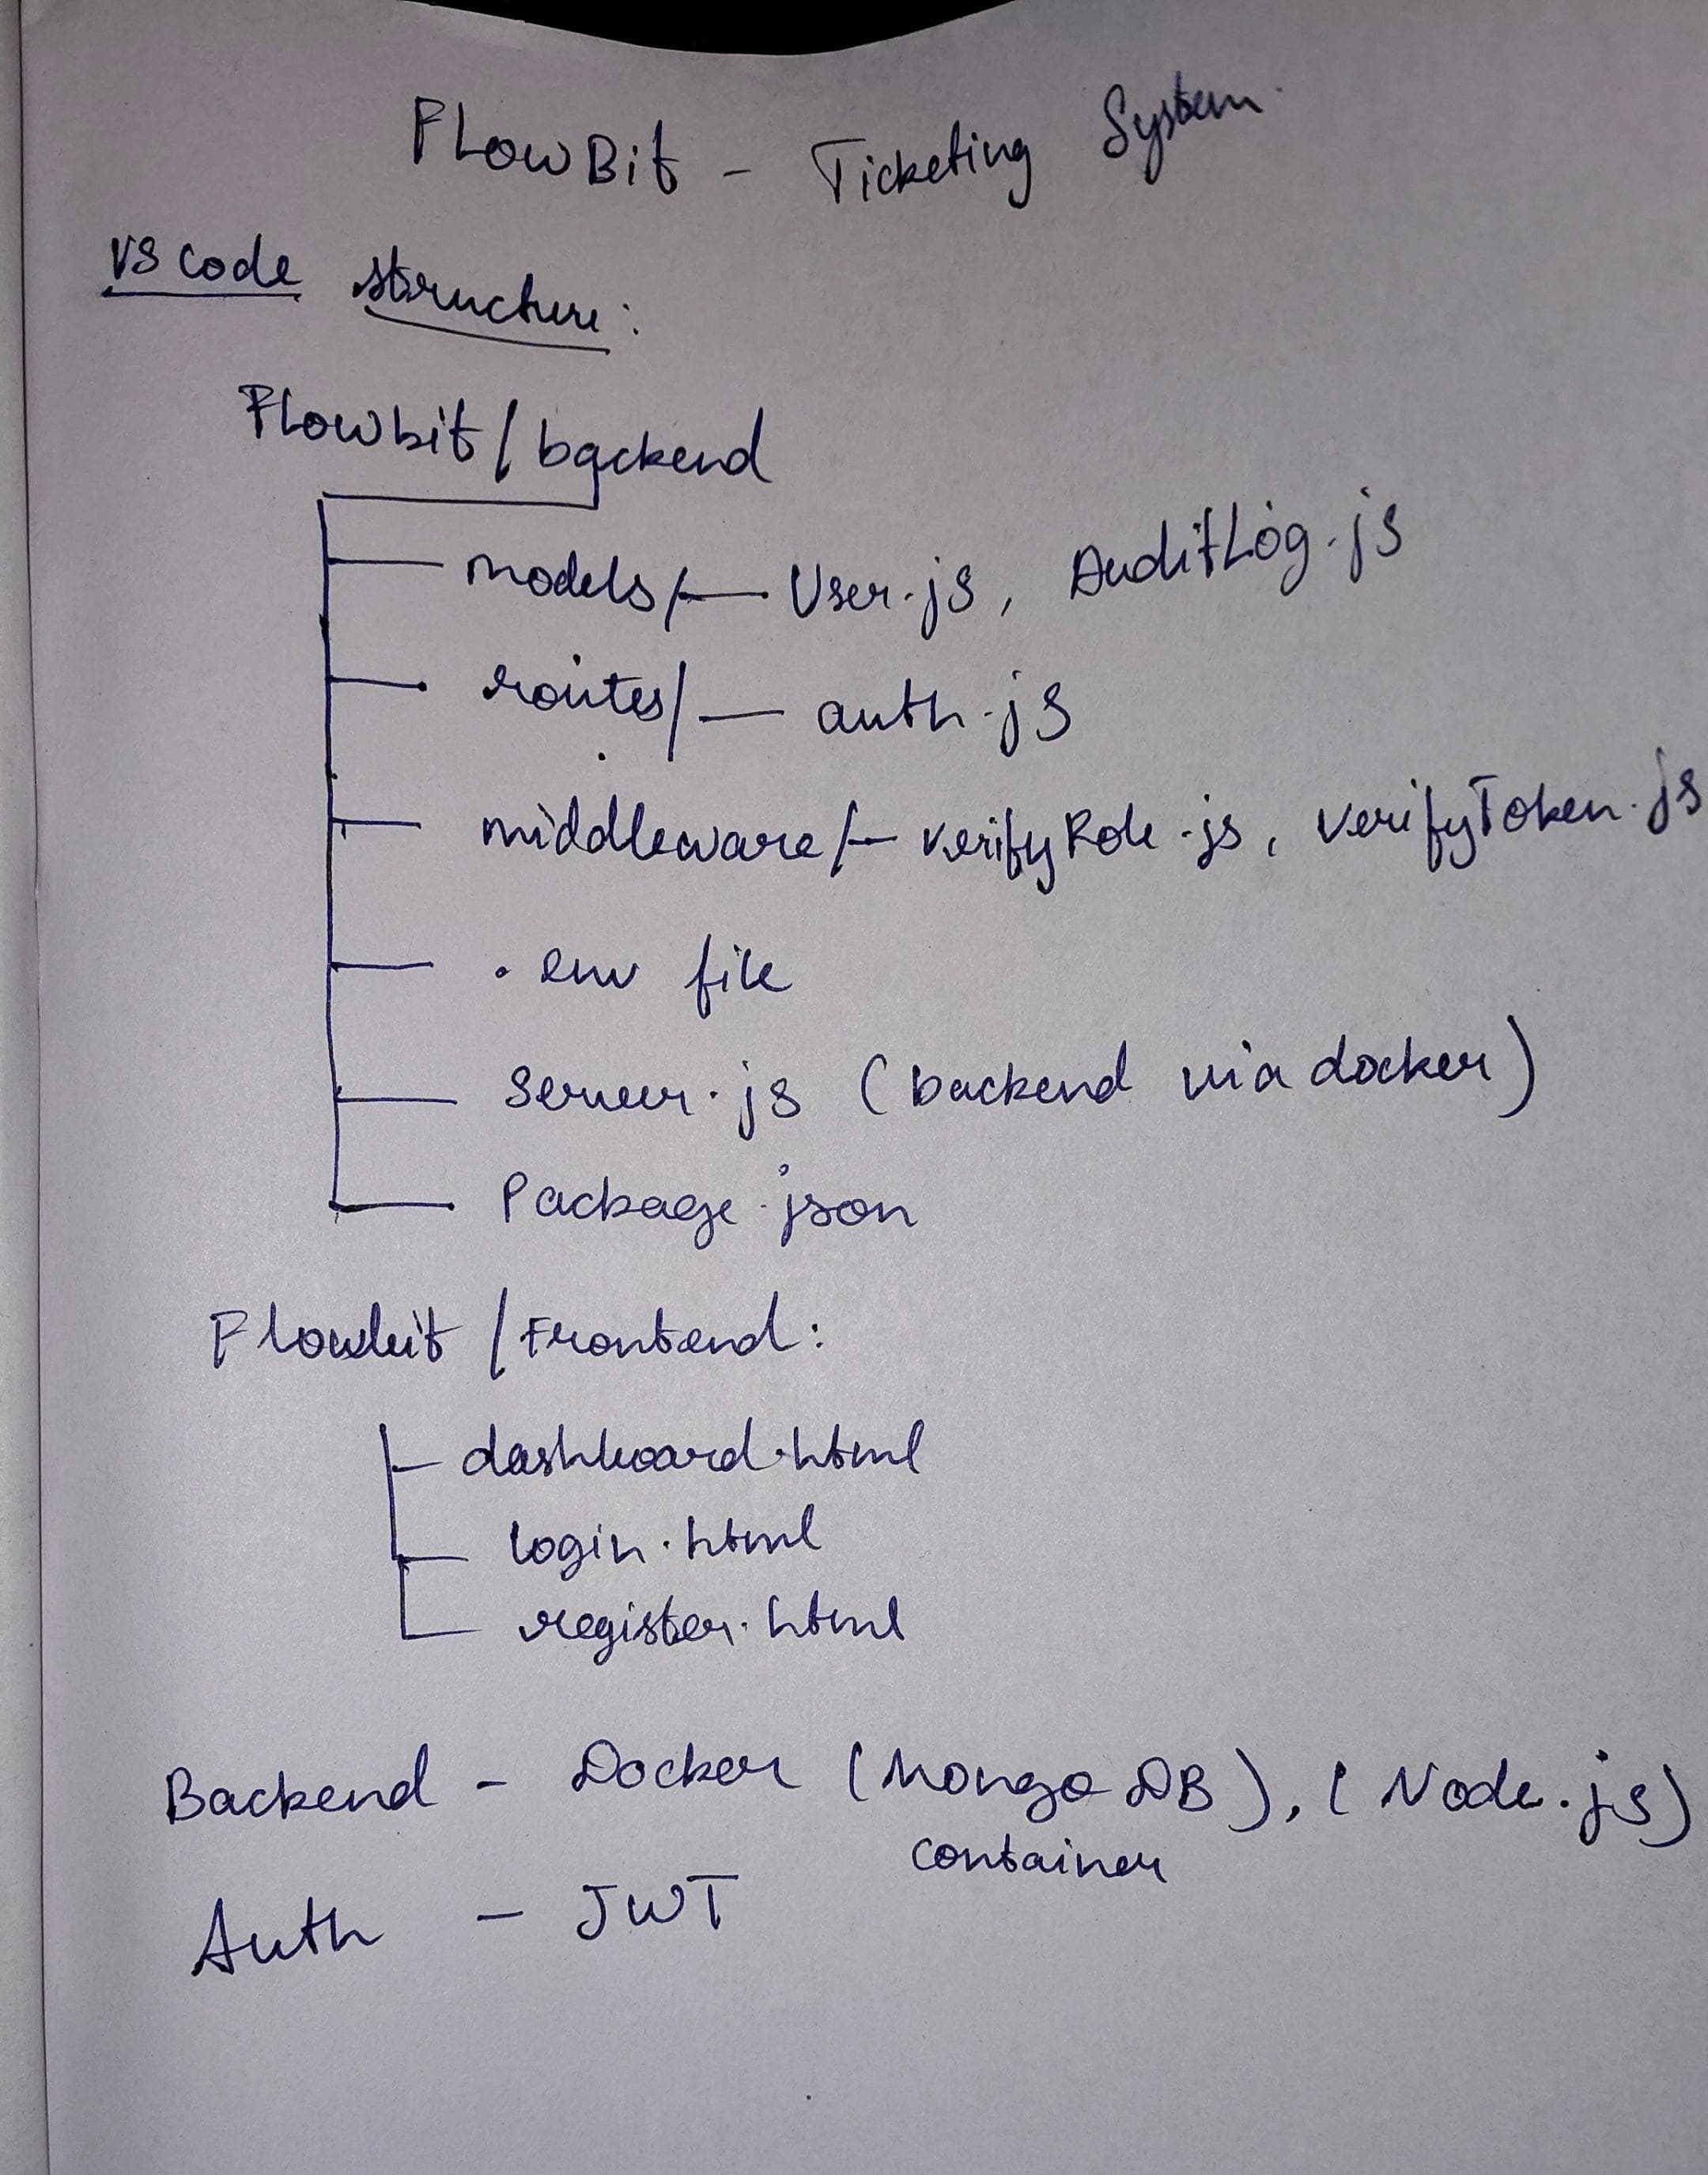 FLowBit - Ticketing System
VS code structure:
Flowbit/backend
models/ — User.js, AuditLog.js
routes/ — auth.js
middleware/ — verifyRole.js, verifyToken.js
.env file
server.js (backend via docker)
Package.json
Flowbit/Frontend:
dashboard.html
login.html
register.html
Backend - Docker (MongoDB), (Node.js)
container
Auth - JWT